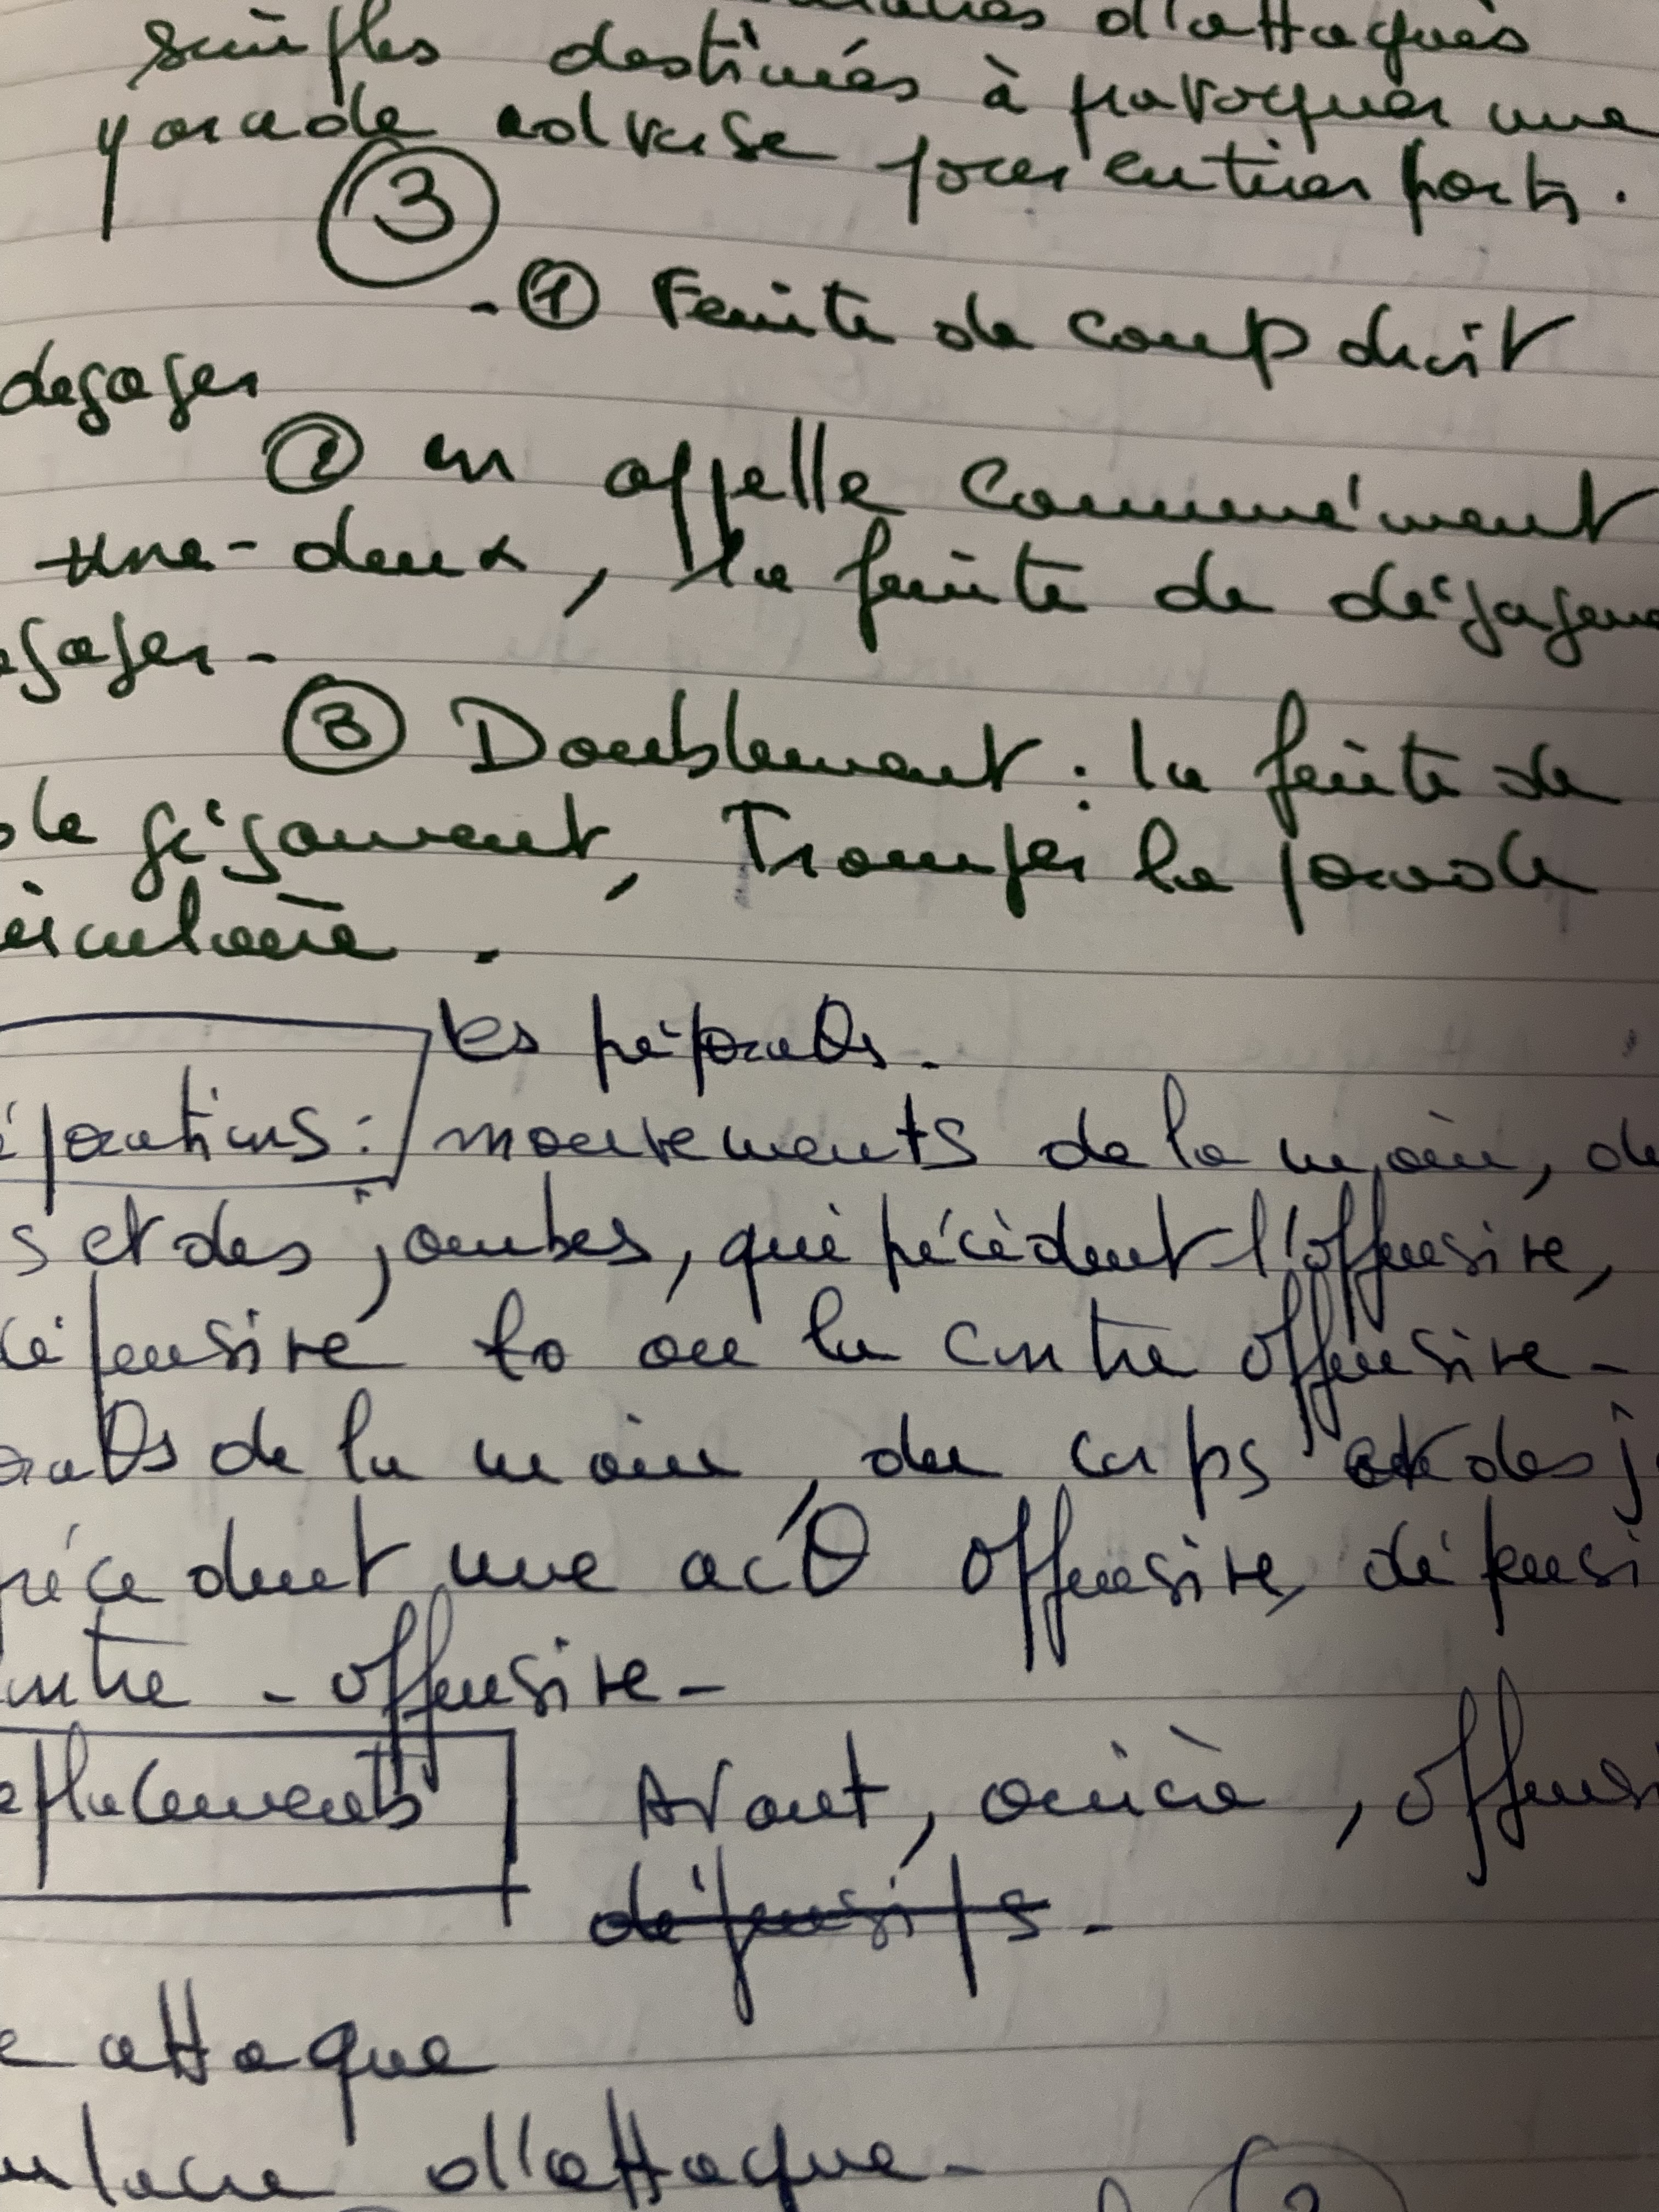 d'attaques
simples destinées à provoquer une
parade adverse pour en tirer parti.
③
- ① Feinte de coup droit
degager
② on appelle communément
une-deux, la feinte de dégageme
gager -
③ Doublement : la feinte de
dégagement, Tromper la parade
irculaire.
les prépara0s.
éparations : mouvements de la main, du
s et des jambes, qui précèdent l'offensive,
défensive to ou la contre offensive -
ara0s de la main, du corps et des j
récedent une ac0 offensive, défensi
ontre - offensive -
éplacements Avant, arrière, offensi
défensifs -
e attaque
d'attaque -
2